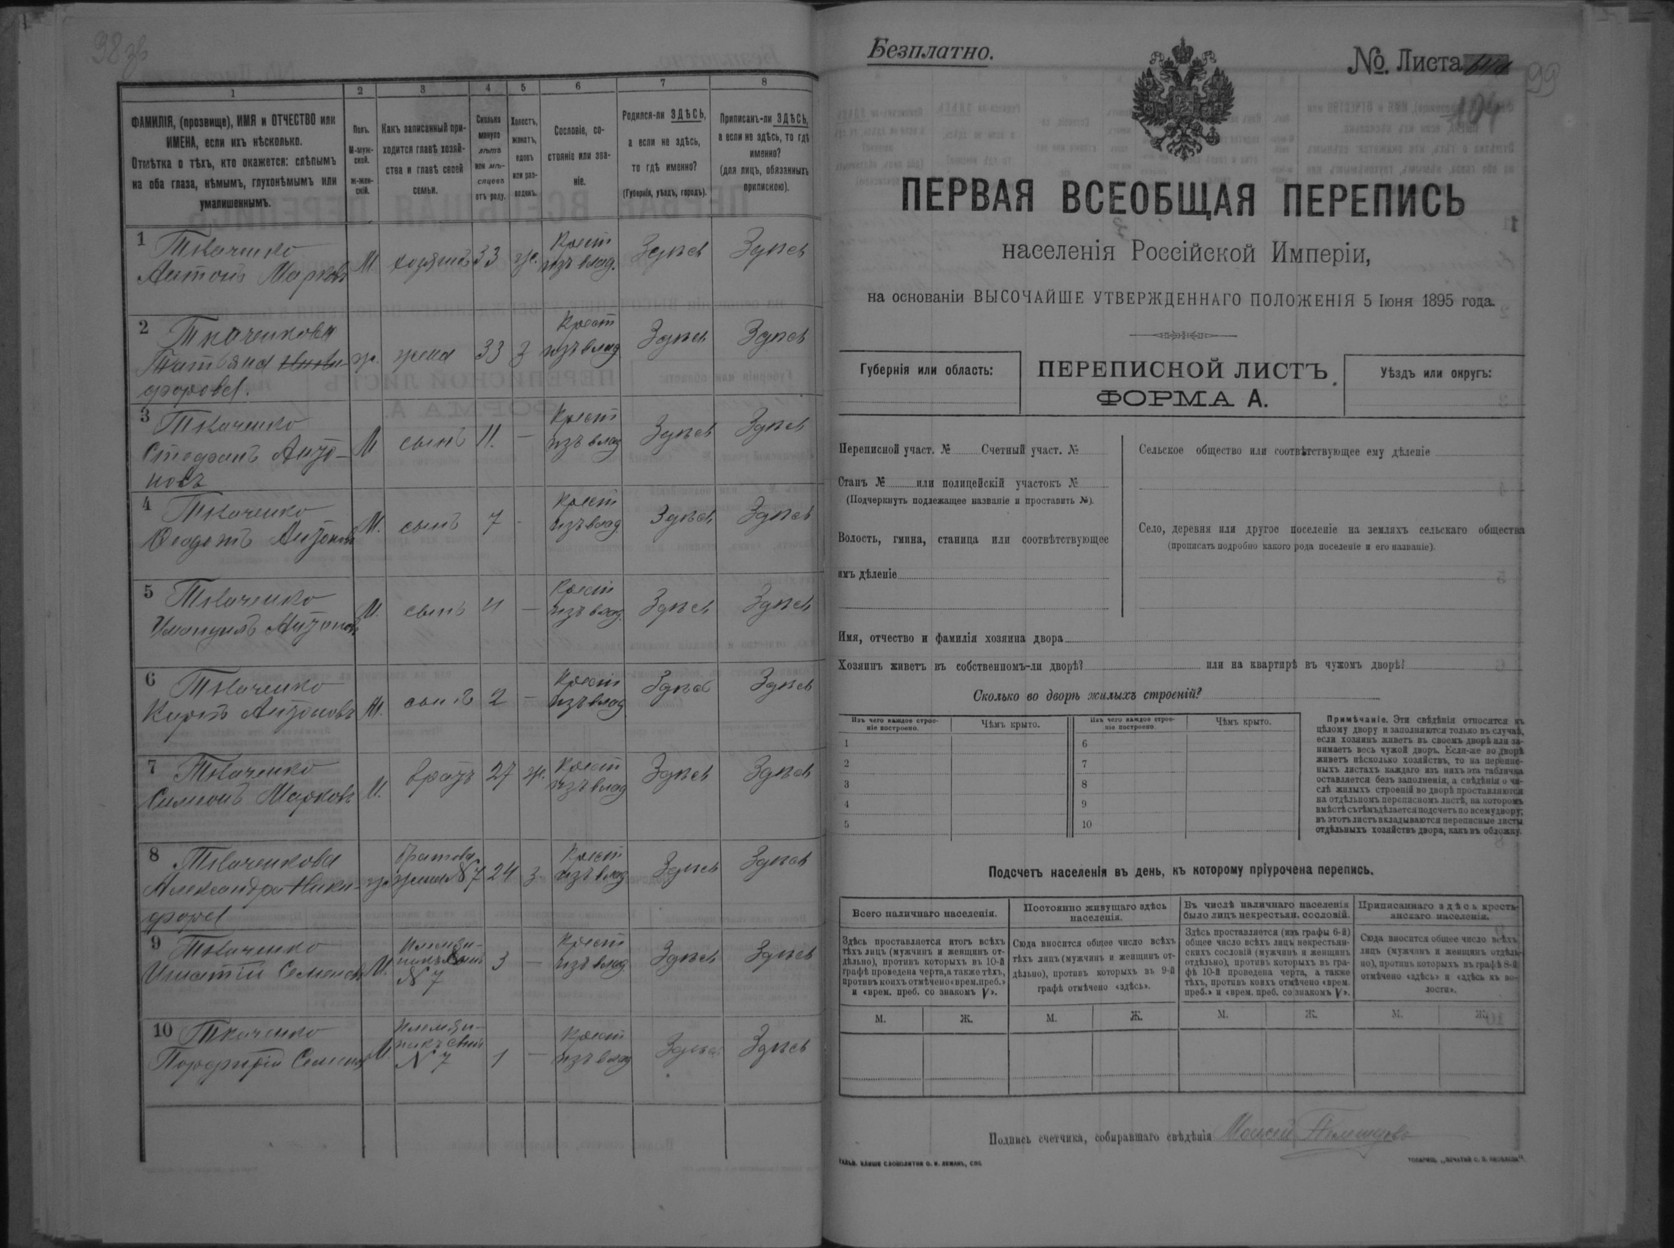 98 об
1 2 3 4 5 6 7 8
ФАМИЛІЯ, (прозвище), ИМЯ и ОТЧЕСТВО или
ИМЕНА, если ихъ нѣсколько.
Отмѣтка о тѣхъ, кто окажется: слѣпымъ
на оба глаза, нѣмымъ, глухонѣмымъ или
умалишеннымъ.
Полъ.
М-муж-
ской.
Ж-жен-
скій.
Какъ записанный при-
ходится главѣ хозяй-
ства и главѣ своей
семьи.
Сколько
минуло
лѣтъ
или мѣ-
сяцевъ
отъ роду.
Холостъ,
женатъ,
вдовъ
или раз-
веденъ.
Сословіе, со-
стояніе или зва-
ніе.
Родился-ли ЗДѢСЬ,
а если не здѣсь,
то гдѣ именно?
(Губернія, уѣздъ, городъ).
Приписанъ-ли ЗДѢСЬ,
а если не здѣсь, то гдѣ
именно?
(для лицъ, обязанныхъ
припискою).
1 Ткаченко
Антонъ Марковъ М хозяинъ 33 ж. Крест изъ влад. Здѣсь Здѣсь
2 Ткаченкова
Татьяна
форова ж. жена 33 з Крест изъ влад Здѣсь Здѣсь
3 Ткаченко
Стефанъ Анто-
новъ М сынъ 11. — Крест изъ влад Здѣсь Здѣсь
4 Ткаченко
Федотъ Антоновъ М. сынъ 7 - Крест изъ влад Здѣсь Здѣсь
5 Ткаченко
Антоновъ М. сынъ 4 — Крест изъ влад. Здѣсь Здѣсь
6 Ткаченко
Антоновъ М. сынъ 2 — Крест изъ влад Здѣсь Здѣсь
7 Ткаченко
Симонъ Марковъ М. братъ 27 ж. Крест изъ влад Здѣсь Здѣсь
8 Ткаченкова
Александра Ники-
форов ж. братова жена N 7 24 з Крест изъ влад Здѣсь Здѣсь
9 Ткаченко
Игнатій Семеновъ М. племян-
никъ сынъ
N 7 3 — Крест изъ влад Здѣсь Здѣсь
10 Ткаченко
Порфирій Семеновъ М племян-
никъ сынъ
N 7 1 — Крест изъ влад Здѣсь Здѣсь
Безплатно.
№. Листа
104
99
ПЕРВАЯ ВСЕОБЩАЯ ПЕРЕПИСЬ
населенія Россійской Имперіи,
на основаніи ВЫСОЧАЙШЕ УТВЕРЖДЕННАГО ПОЛОЖЕНІЯ 5 Іюня 1895 года.
Губернія или область:
ПЕРЕПИСНОЙ ЛИСТЪ
ФОРМА А.
Уѣздъ или округъ:
Переписной участ. № Счетный участ. №
Станъ № или полицейскій участокъ №
(Подчеркнуть подлежащее названіе и проставить №).
Волость, гмина, станица или соотвѣтствующее
имъ дѣленіе
Сельское общество или соотвѣтствующее ему дѣленіе
Село, деревня или другое поселеніе на земляхъ сельскаго общества
(прописать подробно какого рода поселеніе и его названіе).
Имя, отчество и фамилія хозяина двора
Хозяинъ живетъ въ собственномъ-ли дворѣ? или на квартирѣ въ чужомъ дворѣ?
Сколько во дворѣ жилыхъ строеній?
Изъ чего каждое строе-
ніе построено.
Чѣмъ крыто.
Изъ чего каждое строе-
ніе построено.
Чѣмъ крыто.
1 6
2 7
3 8
4 9
5 10
Примѣчаніе. Эти свѣдѣнія относятся къ
цѣлому двору и заполняются только въ случаѣ,
если хозяинъ живетъ въ своемъ дворѣ или за-
нимаетъ весь чужой дворъ. Если-же во дворѣ
живетъ нѣсколько хозяйствъ, то на перепис-
ныхъ листахъ каждаго изъ нихъ эта табличка
оставляется безъ заполненія, а свѣдѣнія о чи-
слѣ жилыхъ строеній во дворѣ проставляются
на отдѣльномъ переписномъ листѣ, на которомъ
вмѣстѣ съ тѣмъ дѣлается подсчетъ по всему двору;
въ этотъ листъ вкладываются переписные листы
отдѣльныхъ хозяйствъ двора, какъ въ обложку.
Подсчетъ населенія въ день, къ которому пріурочена перепись.
Всего наличнаго населенія.
Постоянно живущаго здѣсь
населенія.
Въ числѣ наличнаго населенія
было лицъ некрестьян. сословій.
Приписаннаго здѣсь кресть-
янскаго населенія.
Здѣсь проставляется итогъ всѣхъ
тѣхъ лицъ (мужчинъ и женщинъ от-
дѣльно), противъ которыхъ въ 10-й
графѣ проведена черта, а также тѣхъ,
противъ коихъ отмѣчено «врем. преб.»
и «врем. преб. со знакомъ V».
Сюда вносится общее число всѣхъ
тѣхъ лицъ (мужчинъ и женщинъ от-
дѣльно), противъ которыхъ въ 9-й
графѣ отмѣчено «здѣсь».
Здѣсь проставляется (изъ графы 6-й)
общее число всѣхъ лицъ некрестьян-
скихъ сословій (мужчинъ и женщинъ
отдѣльно), противъ которыхъ въ гра-
фѣ 10-й проведена черта, а также
тѣхъ, противъ коихъ отмѣчено «врем.
преб.» и «врем. преб. со знакомъ V».
Сюда вносится общее число всѣхъ
лицъ (мужчинъ и женщинъ отдѣль-
но), противъ которыхъ въ графѣ 8-й
отмѣчено «здѣсь» и «здѣсь въ во-
лости».
М. Ж. М. Ж. М. Ж. М. Ж.
Подпись счетчика, собиравшаго свѣдѣнія Моисей